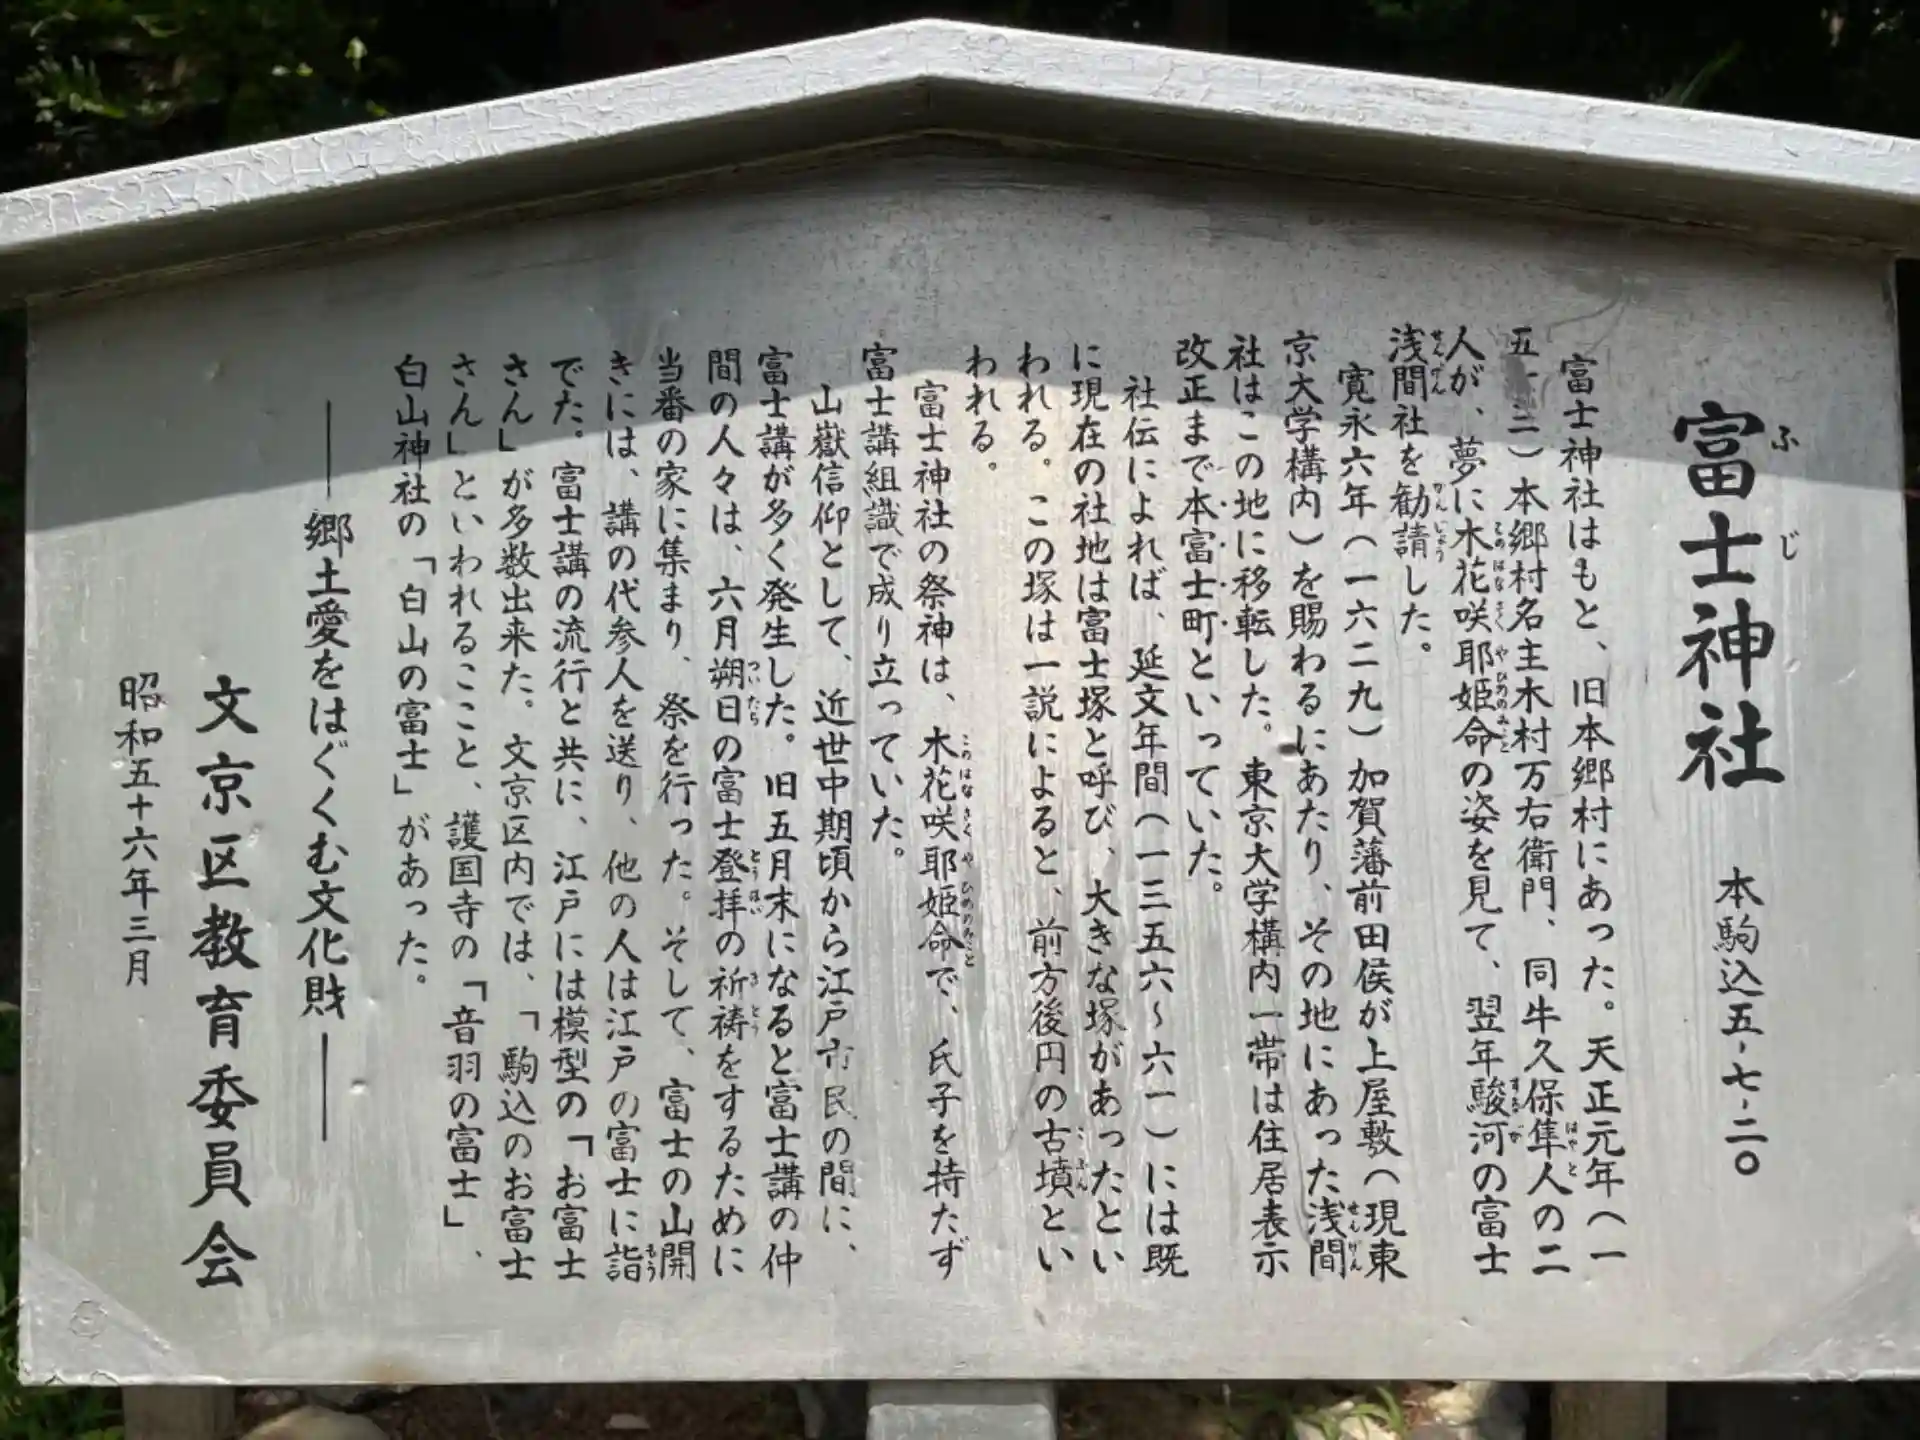 富士神社 本駒込五-七-二〇
富士神社はもと、旧本郷村にあった。天正元年(一
五七三)本郷村名主木村万右衛門、同牛久保隼人の二
人が、夢に木花咲耶姫命の姿を見て、翌年駿河の富士
浅間社を勧請した。
寛永六年(一六二九)加賀藩前田侯が上屋敷(現東
京大学構内)を賜わるにあたり、その地にあった浅間
社はこの地に移転した。東京大学構内一帯は住居表示
改正まで本富士町といっていた。
社伝によれば、延文年間(一三五六〜六一)には既
に現在の社地は富士塚と呼び、大きな塚があったとい
われる。この塚は一説によると、前方後円の古墳とい
われる。
富士神社の祭神は、木花咲耶姫命で、氏子を持たず
富士講組識で成り立っていた。
山嶽信仰として、近世中期頃から江戸市民の間に、
富士講が多く発生した。旧五月末になると富士講の仲
間の人々は、六月朔日の富士登拝の祈祷をするために
当番の家に集まり、祭を行った。そして、富士の山開
きには、講の代参人を送り、他の人は江戸の富士に詣
でた。富士講の流行と共に、江戸には模型の「お富士
さん」が多数出来た。文京区内では、「駒込のお富士
さん」といわれるここと、護国寺の「音羽の富士」、
白山神社の「白山の富士」があった。
——郷土愛をはぐくむ文化財——
文京区教育委員会
昭和五十六年三月